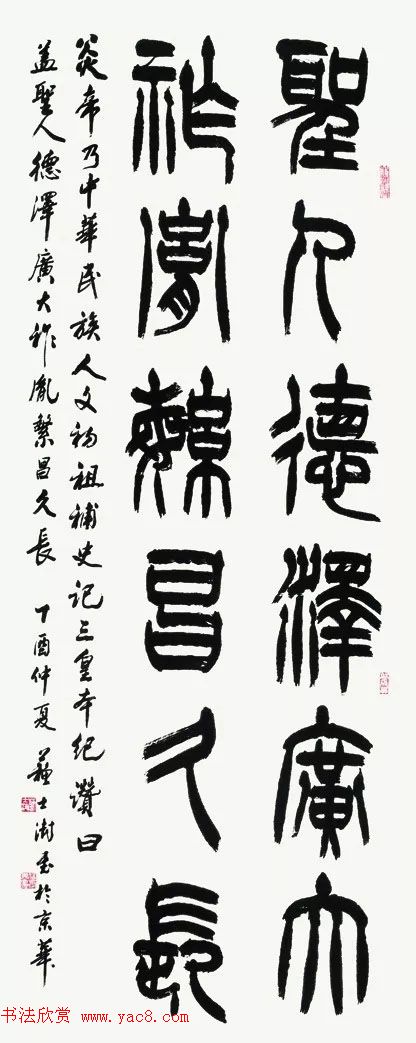 聖人德澤廣大
祚胤繁昌久長
炎帝乃中華民族人文初祖補史記三皇本紀讚曰
盖聖人德澤廣大祚胤繁昌久長 丁酉仲夏 蘇士澍書於京華
书法欣赏 www.yac8.com